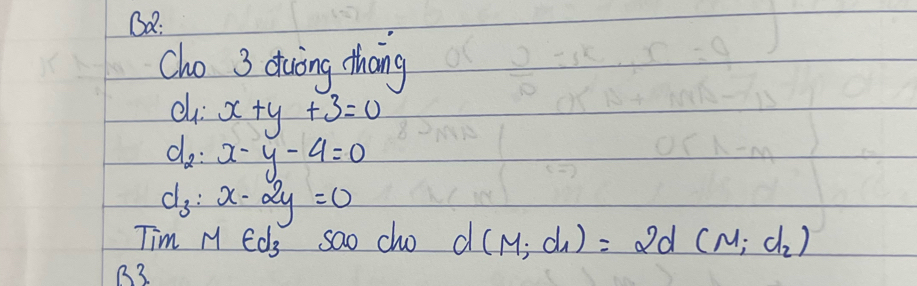 B2:
Cho 3 đường thẳng
d₁: x + y + 3 = 0
d₂: x - y - 4 = 0
d₃: x - 2y = 0
Tìm M ∈ d₃ sao cho d(M; d₁) = 2d (M; d₂)
B3.